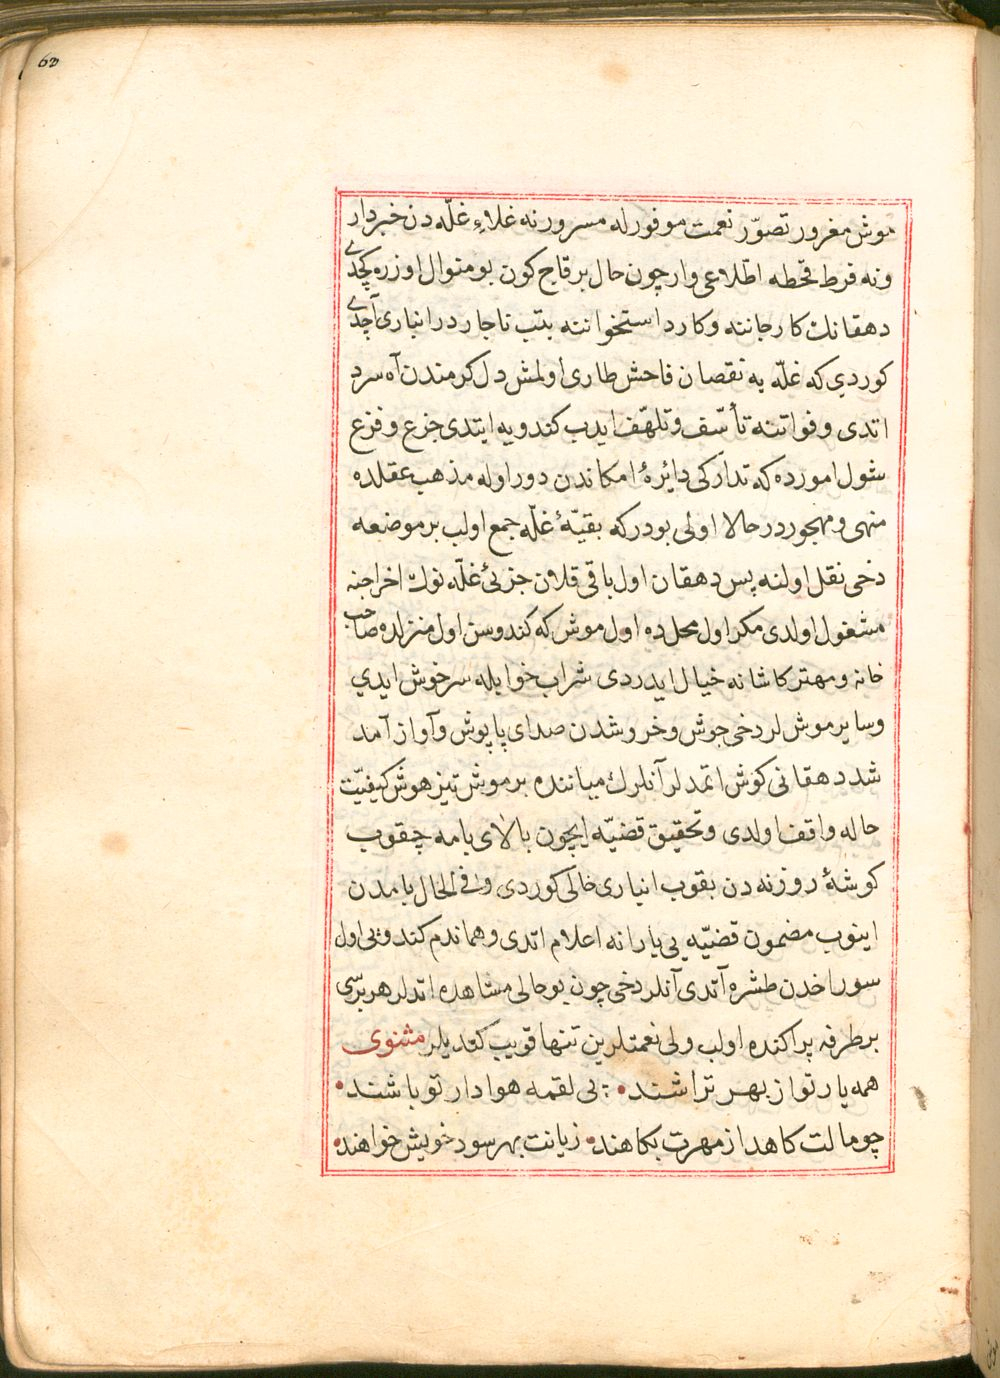 60
موش مغرور تصوّر نعمت موفورله مسرور نه غلاءِ غلّه دن خبردار
ونه فرط قحطه اطلاعی وار چون حال بر قاج كون بو منوال اوزره كچدی
دهقانك كار جاننه وكارد استخواننه یتب ناچار در انباری آچدی
كوردي كه غلّه یه نقصان فاحش طاری اولمش دل كرمندن آه سرد
اتدی وفواتنه تأسّف وتلهّف ایدب كندویه ایتدی جزع وفزع
شول امورده كه تداركی دائرۀ امكاندن دور اوله مذهب عقلده
منهی ومهجوردر حالا اولی بودر كه بقیّۀ غلّه جمع اولب بر موضعه
دخی نقل اولنه پس دهقان اول باقی قلان جزئی غلّه نوك اخراجنه
مشغول اولدی مكر اول محلده اول موش كه كندوسن اول منزلده صاحب
خانه ومهتر كاشانه خیال ایدردی شراب خوابله سرخوش ایدي
وسایر موش لر دخی جوش وخروشدن صدای پاپوش وآواز آمد
شد دهقانی كوش اتمدلر آنلرك میاننده بر موش تیز هوش كیفیّت
حاله واقف اولدی وتحقیق قضیّه ایچون بالای بامه چقوب
كوشۀ روزنه دن بقوب انباری خالی كوردی وفی الحال بامدن
اینوب مضمون قضیّه یی یارانه اعلام اتدی وهماندم كندویی اول
سوراخدن طشره آتدی آنلر دخی چون بو حالی مشاهده اتدلر هر برسی
بر طرفه پراكنده اولب ولی نعمتلرین تنها قویب كتدیلر مثنوی
همه یار تو از بهر تراشند • پی لقمه هوادار تو باشند •
چو مالت كاهد از مهرت بكاهند • زیانت بهر سود خویش خواهند •